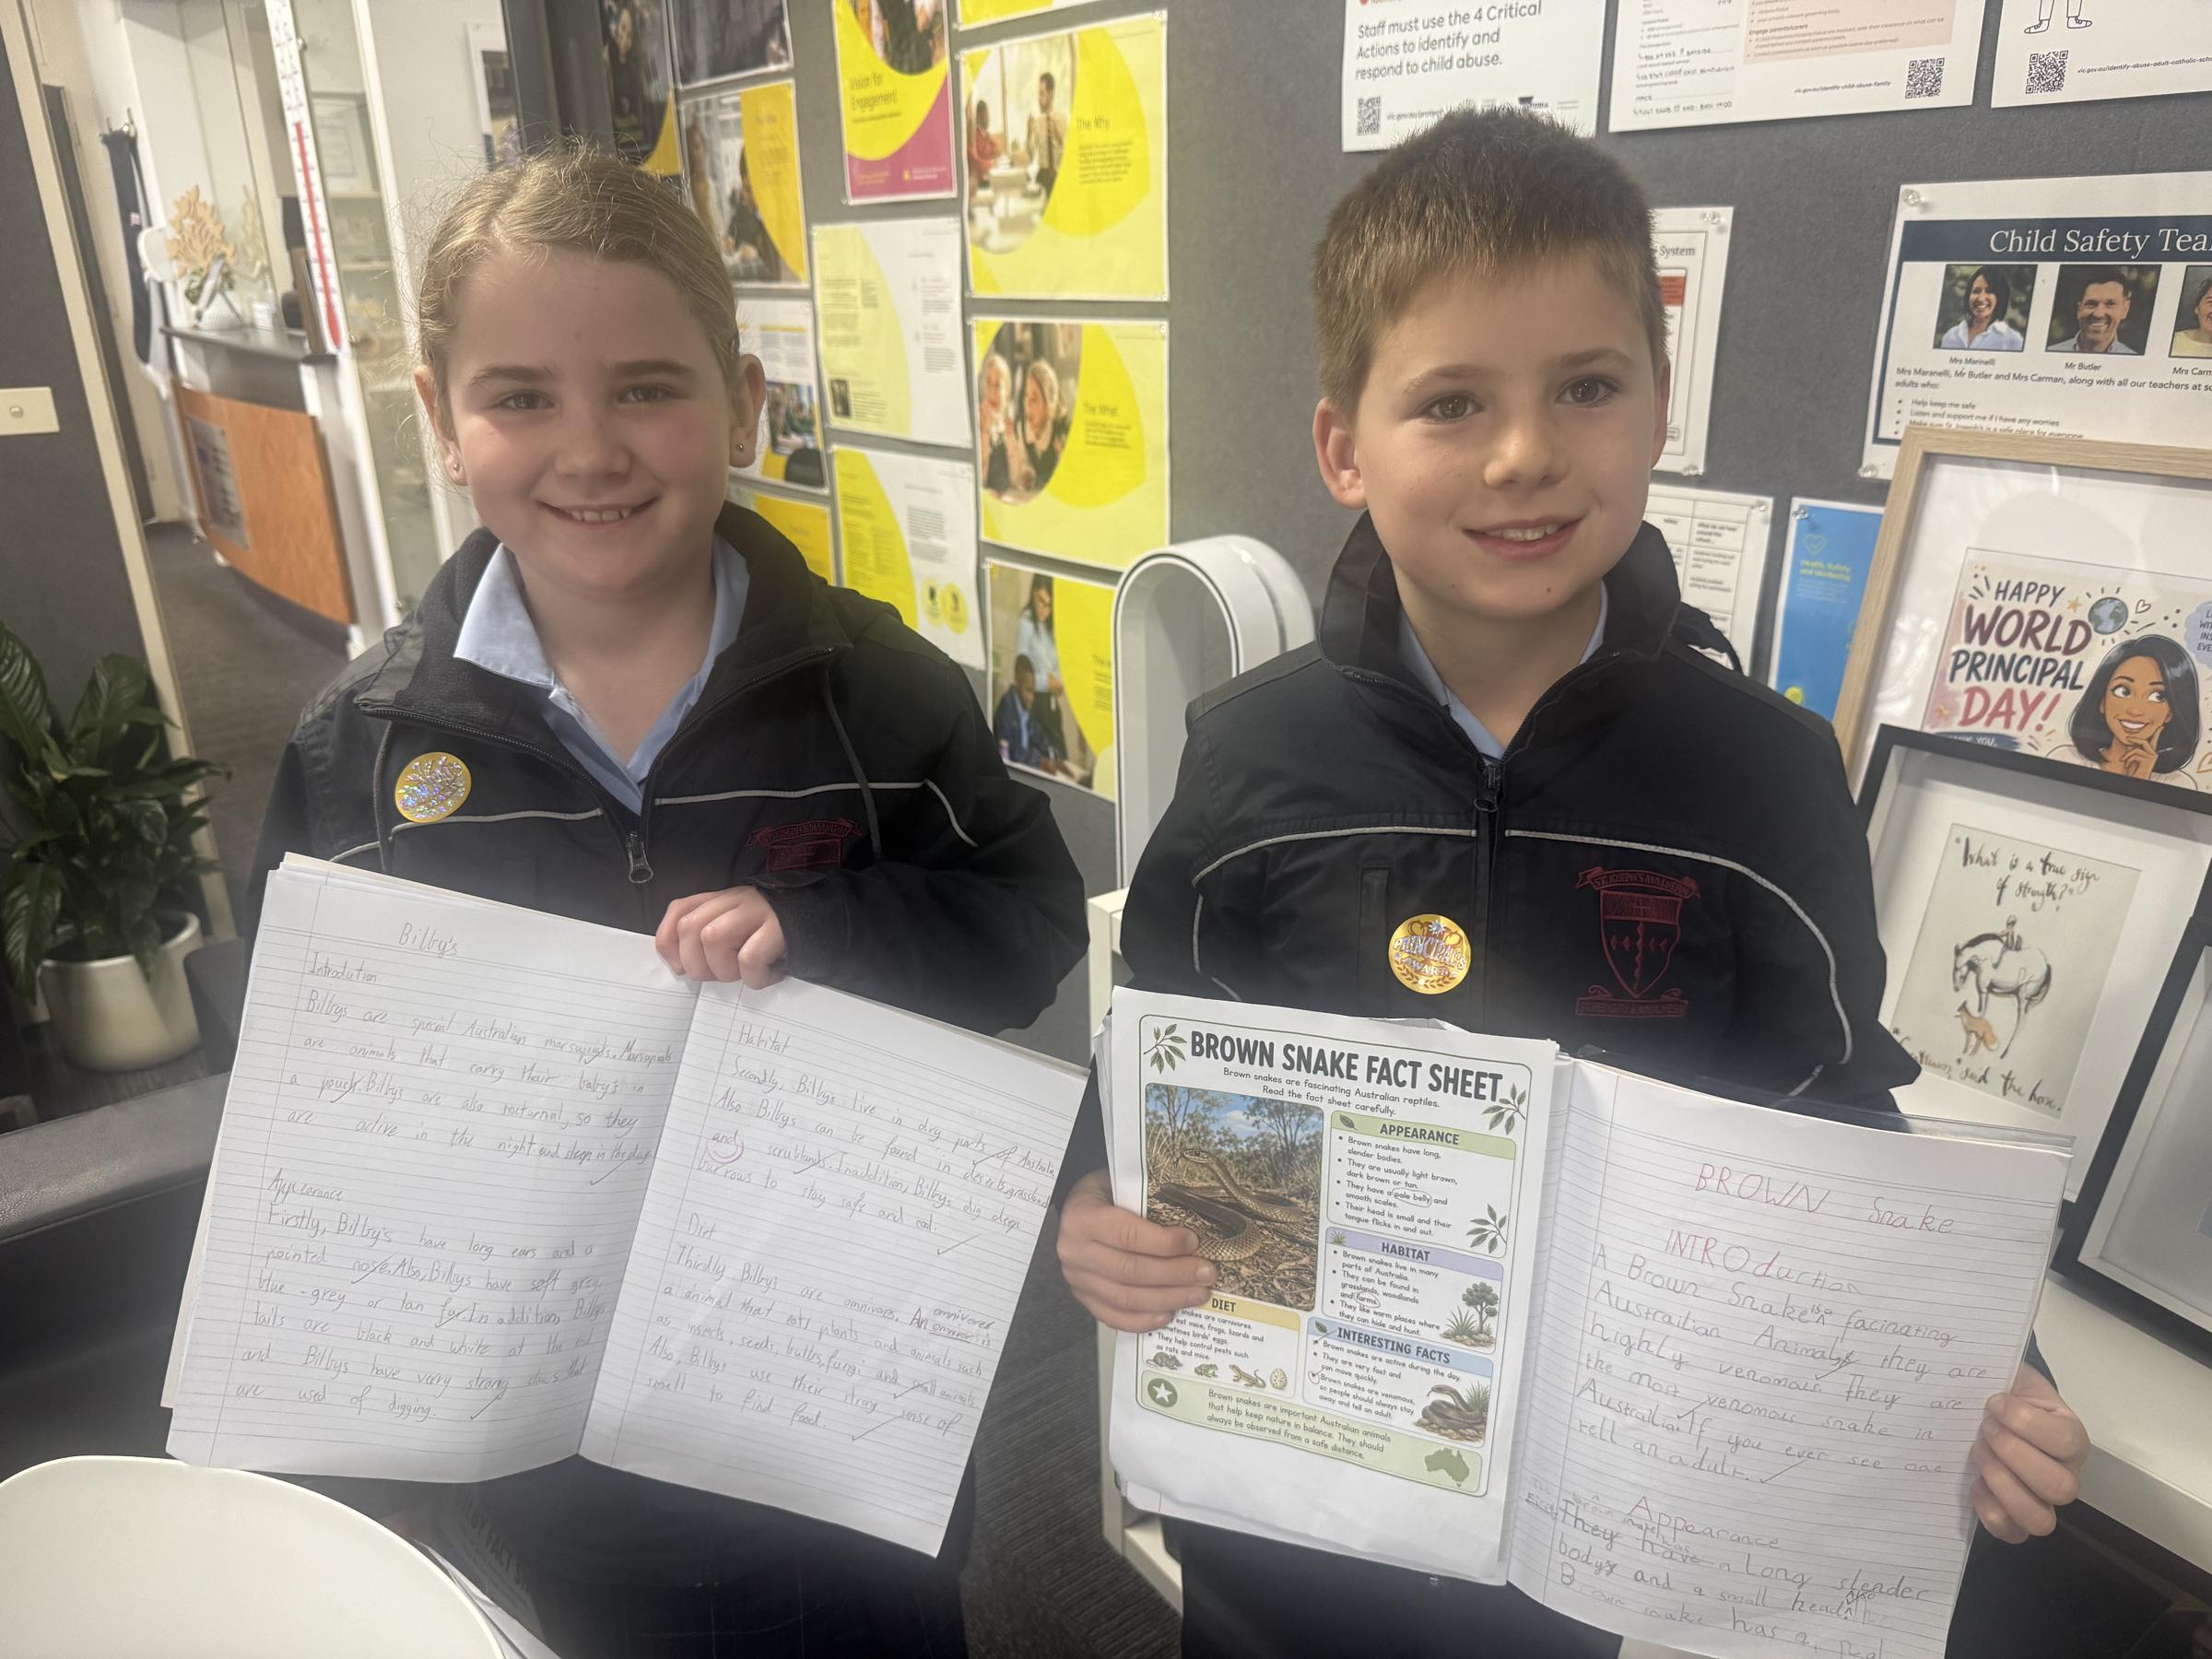 Bilby's
Introdution
Bilbys are special Australian marsupials. Marsupials
are animals that carry thair baby's in
a pouch. Bilbys are also nocturnal, so they
are active in the night and sleep in the day.
Appearance
Firstly, Bilby's have long ears and a
pointed nose. Also, Bilbys have soft grey,
blue-grey or tan fur. In addition, Bilbys
tails are black and white at the end
and Bilbys have very strong claws that
are used of digging.
Habitat
Secondly, Bilby's live in dry parts of Australia.
Also Bilbys can be found in deserts, grasslands
and scrublands. In addition, Bilbys dig deep
burrows to stay safe and cool.
Diet
Thirdly Bilbys are omnivors. An omnivores
a animal that eats plants and animals such
as insects, seeds, bulbs, fungi and small animals.
Also, Bilbys use their strong sense of
smell to find food.
BROWN SNAKE FACT SHEET
Brown snakes are fascinating Australian reptiles.
Read the fact sheet carefully.
APPEARANCE
Brown snakes have long,
slender bodies.
They are usually light brown,
dark brown or tan.
They have a pale belly and
smooth scales.
Their head is small and their
tongue flicks in and out.
HABITAT
Brown snakes live in many
parts of Australia.
They can be found in
grasslands, woodlands
and farms.
They like warm places where
they can hide and hunt.
DIET
snakes are carnivores.
eat mice, frogs, lizards and
sometimes birds' eggs.
They help control pests such
as rats and mice.
INTERESTING FACTS
Brown snakes are active during the day.
They are very fast and
can move quickly.
Brown snakes are venomous,
so people should always stay
away and tell an adult.
Brown snakes are important Australian animals
that help keep nature in balance. They should
always be observed from a safe distance.
BROWN Snake
INTRODuction
A Brown Snake is a facinating
Austrailian Animals they are
highly venomous. They are
the most venomous snake in
Austrailia. If you ever see one
tell an adult.
Appearance
They have a Long slender
body and a small head
Brown snake has a
PRINCIPAL'S
AWARD
Vision for
Engagement
The Why
The What
Staff must use the 4 Critical
Actions to identify and
respond to child abuse.
vic.gov.au/identify-child-abuse-family
System
Child Safety Tea
Mrs Marinelli
Mr Butler
Mrs Carm
Mrs Maranelli, Mr Butler and Mrs Carman, along with all our teachers at sc
adults who:
Help keep me safe
Listen and support me if I have any worries
Make sure St Joseph's is a safe place for everyone
Health, Safety
and Wellbeing
HAPPY
WORLD
PRINCIPAL
DAY!
"What is a true sign
of strength?"
said the horse.